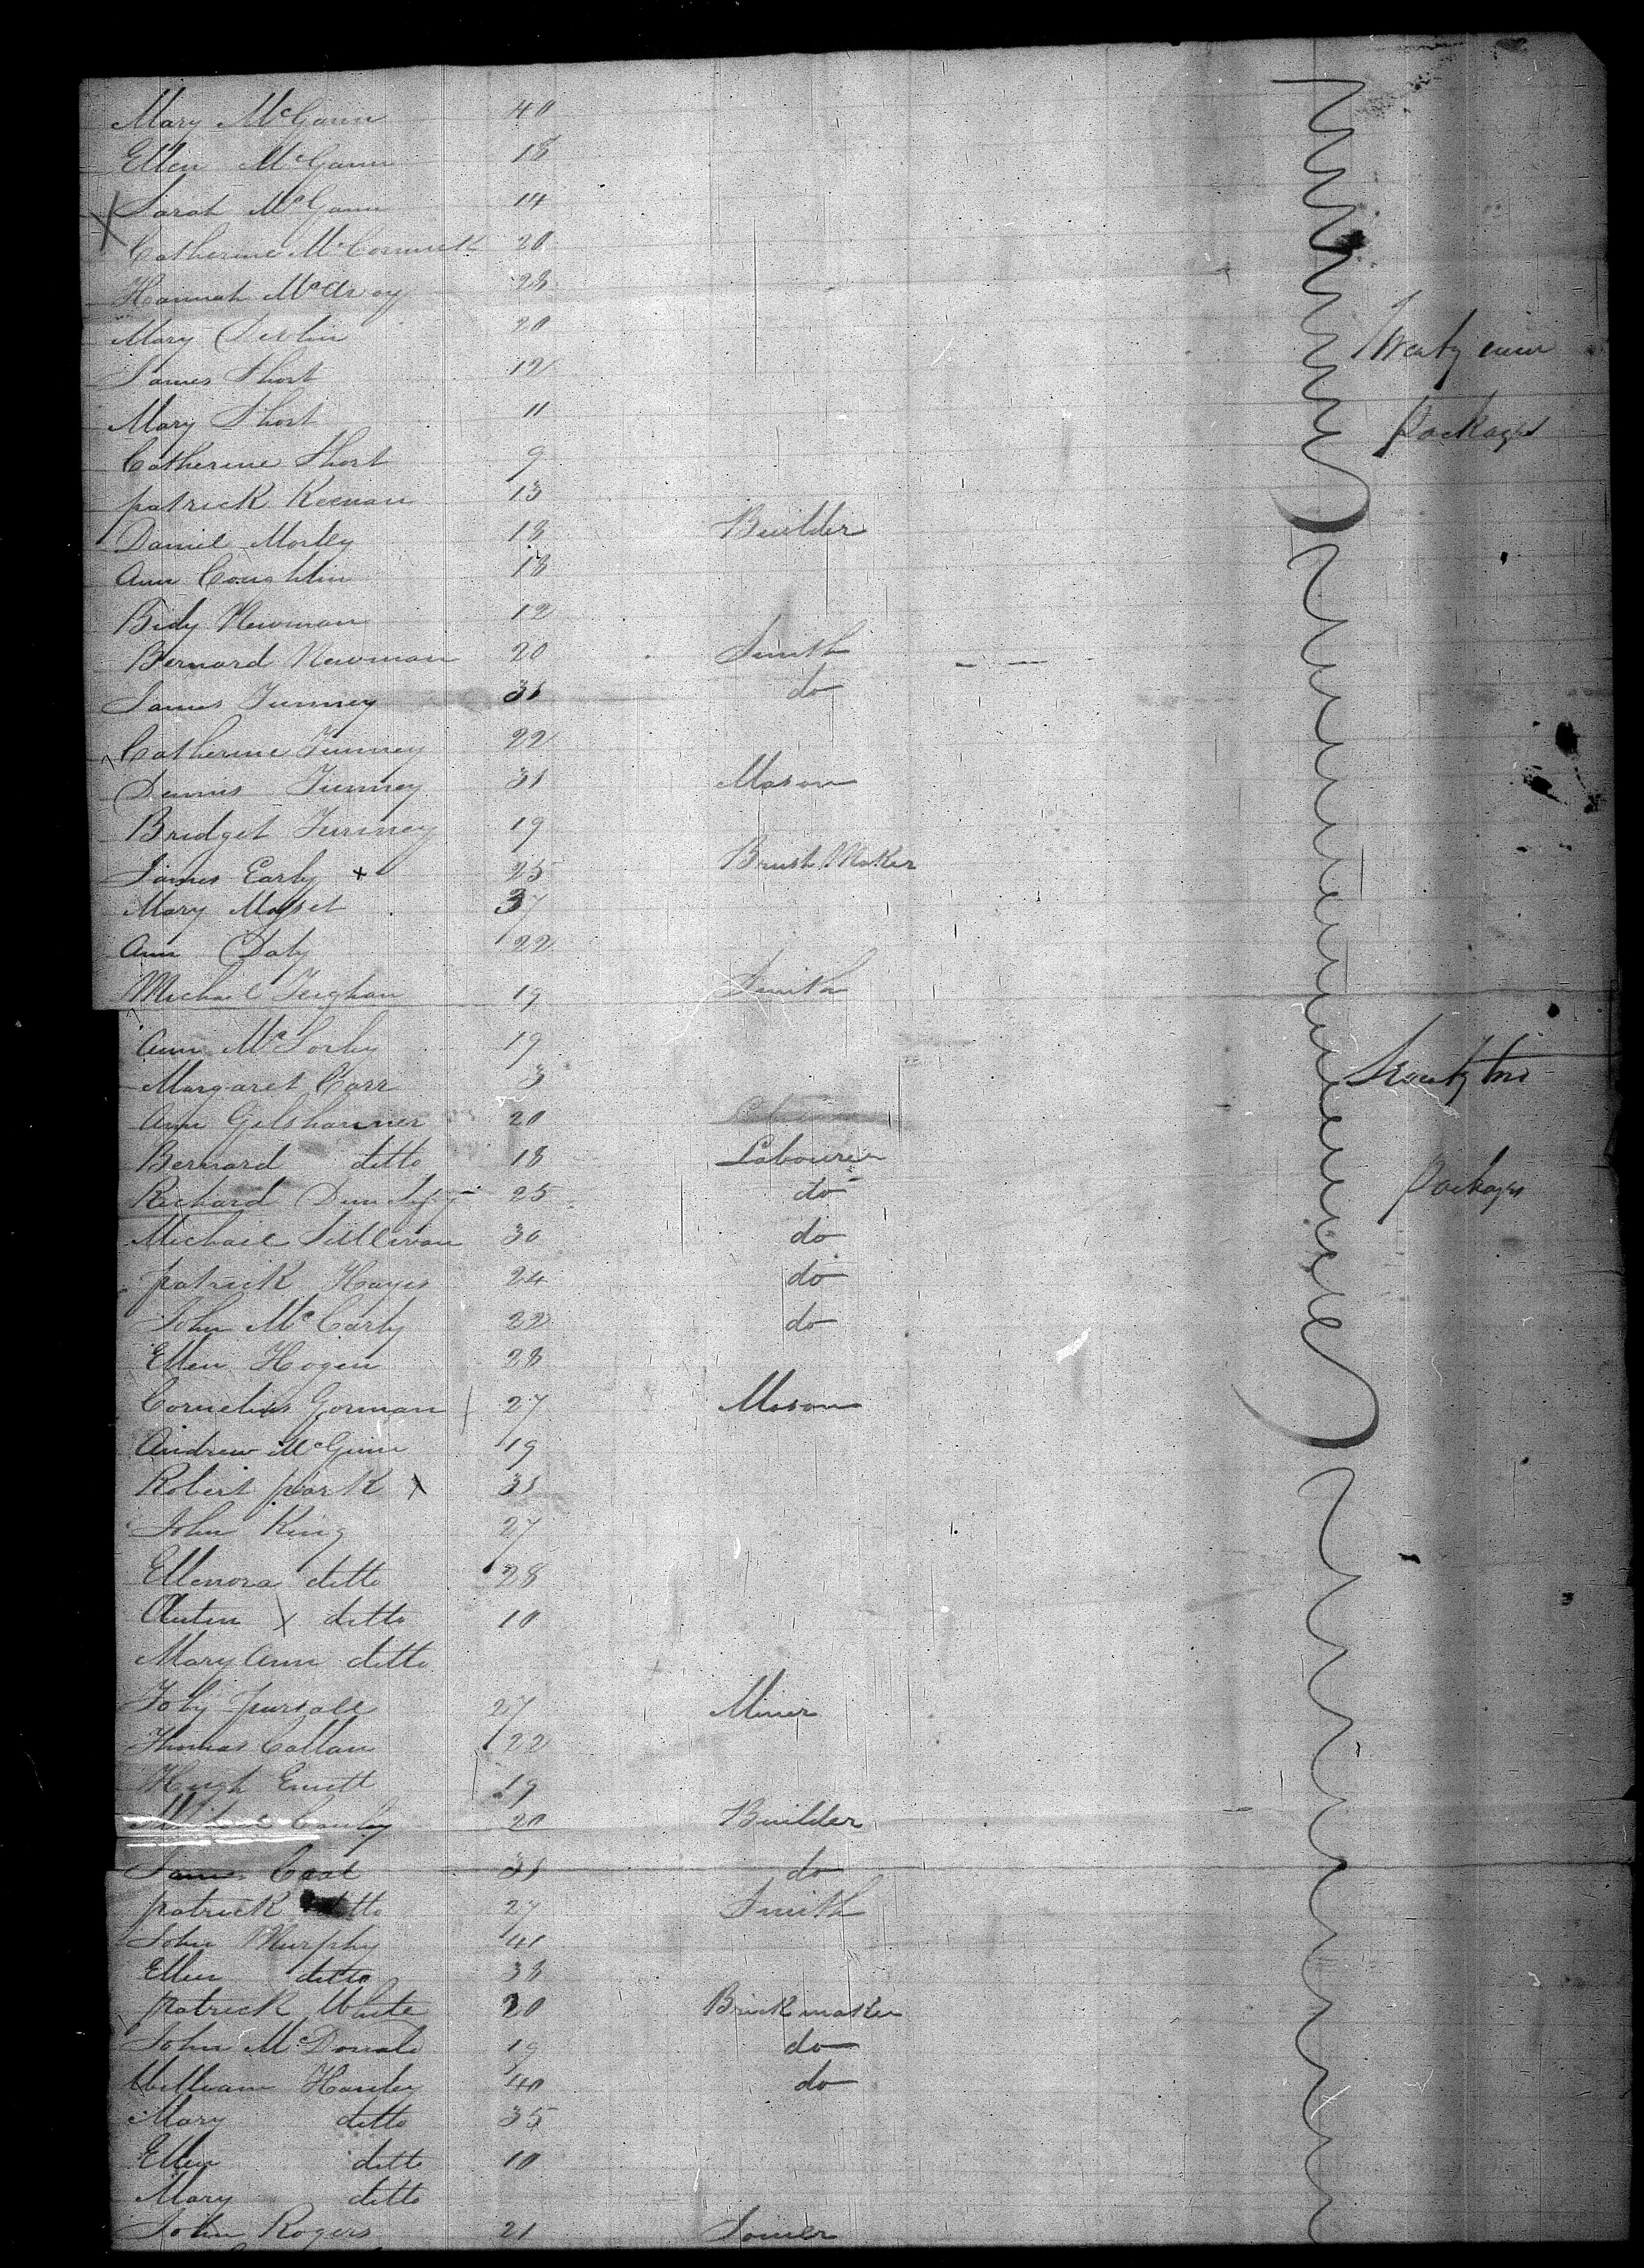 Mary McGann 40
Ellen McGann 18
Sarah McGann 14
Catherine McCormick 20
Hannah McAvoy 28
Mary Devlin 20
James Short 12
Mary Short 11
Catherine Short 9
patrick Keenan 13
Daniel Morley 18 Builder
Ann Coughlin 18
Bidy Newman 12
Bernard Newman 20 Smith
James Tunney 31 do
Catherine Tunney 22
Dennis Tunney 31 Mason
Bridget Tunney 19
James Early x 25 Brush Maker
Mary 37
Ann Daly 22
Michael Teighan 19 Smith
Ann McSorley 19
Margaret Carr 3
Ann Gilshanner 20
Bernard ditto 18 Labourer
Richard 25 do
Michael Sullivan 30 do
patrick Hayes 24 do
John McCarty 22 do
Ellen Hogen 28
Cornelius Gorman 27 Mason
Andrew McGinn 19
Robert park x 31
John King 27
Ellenora ditto 28
x ditto 10
Mary Ann ditto
Toby 27 Miner
Thomas Callan 22
Hugh Emett 19
20 Builder
James 31 do
patrick ditto 27 Smith
John Murphy 41
Ellen ditto 38
patrick White 20 Brick maker
John McDonald 19 do
William Hanley 40 do
Mary ditto 35
Ellen ditto 10
Mary ditto
John Rogers 21
Twenty nine
Packages
Seventy two
Packages